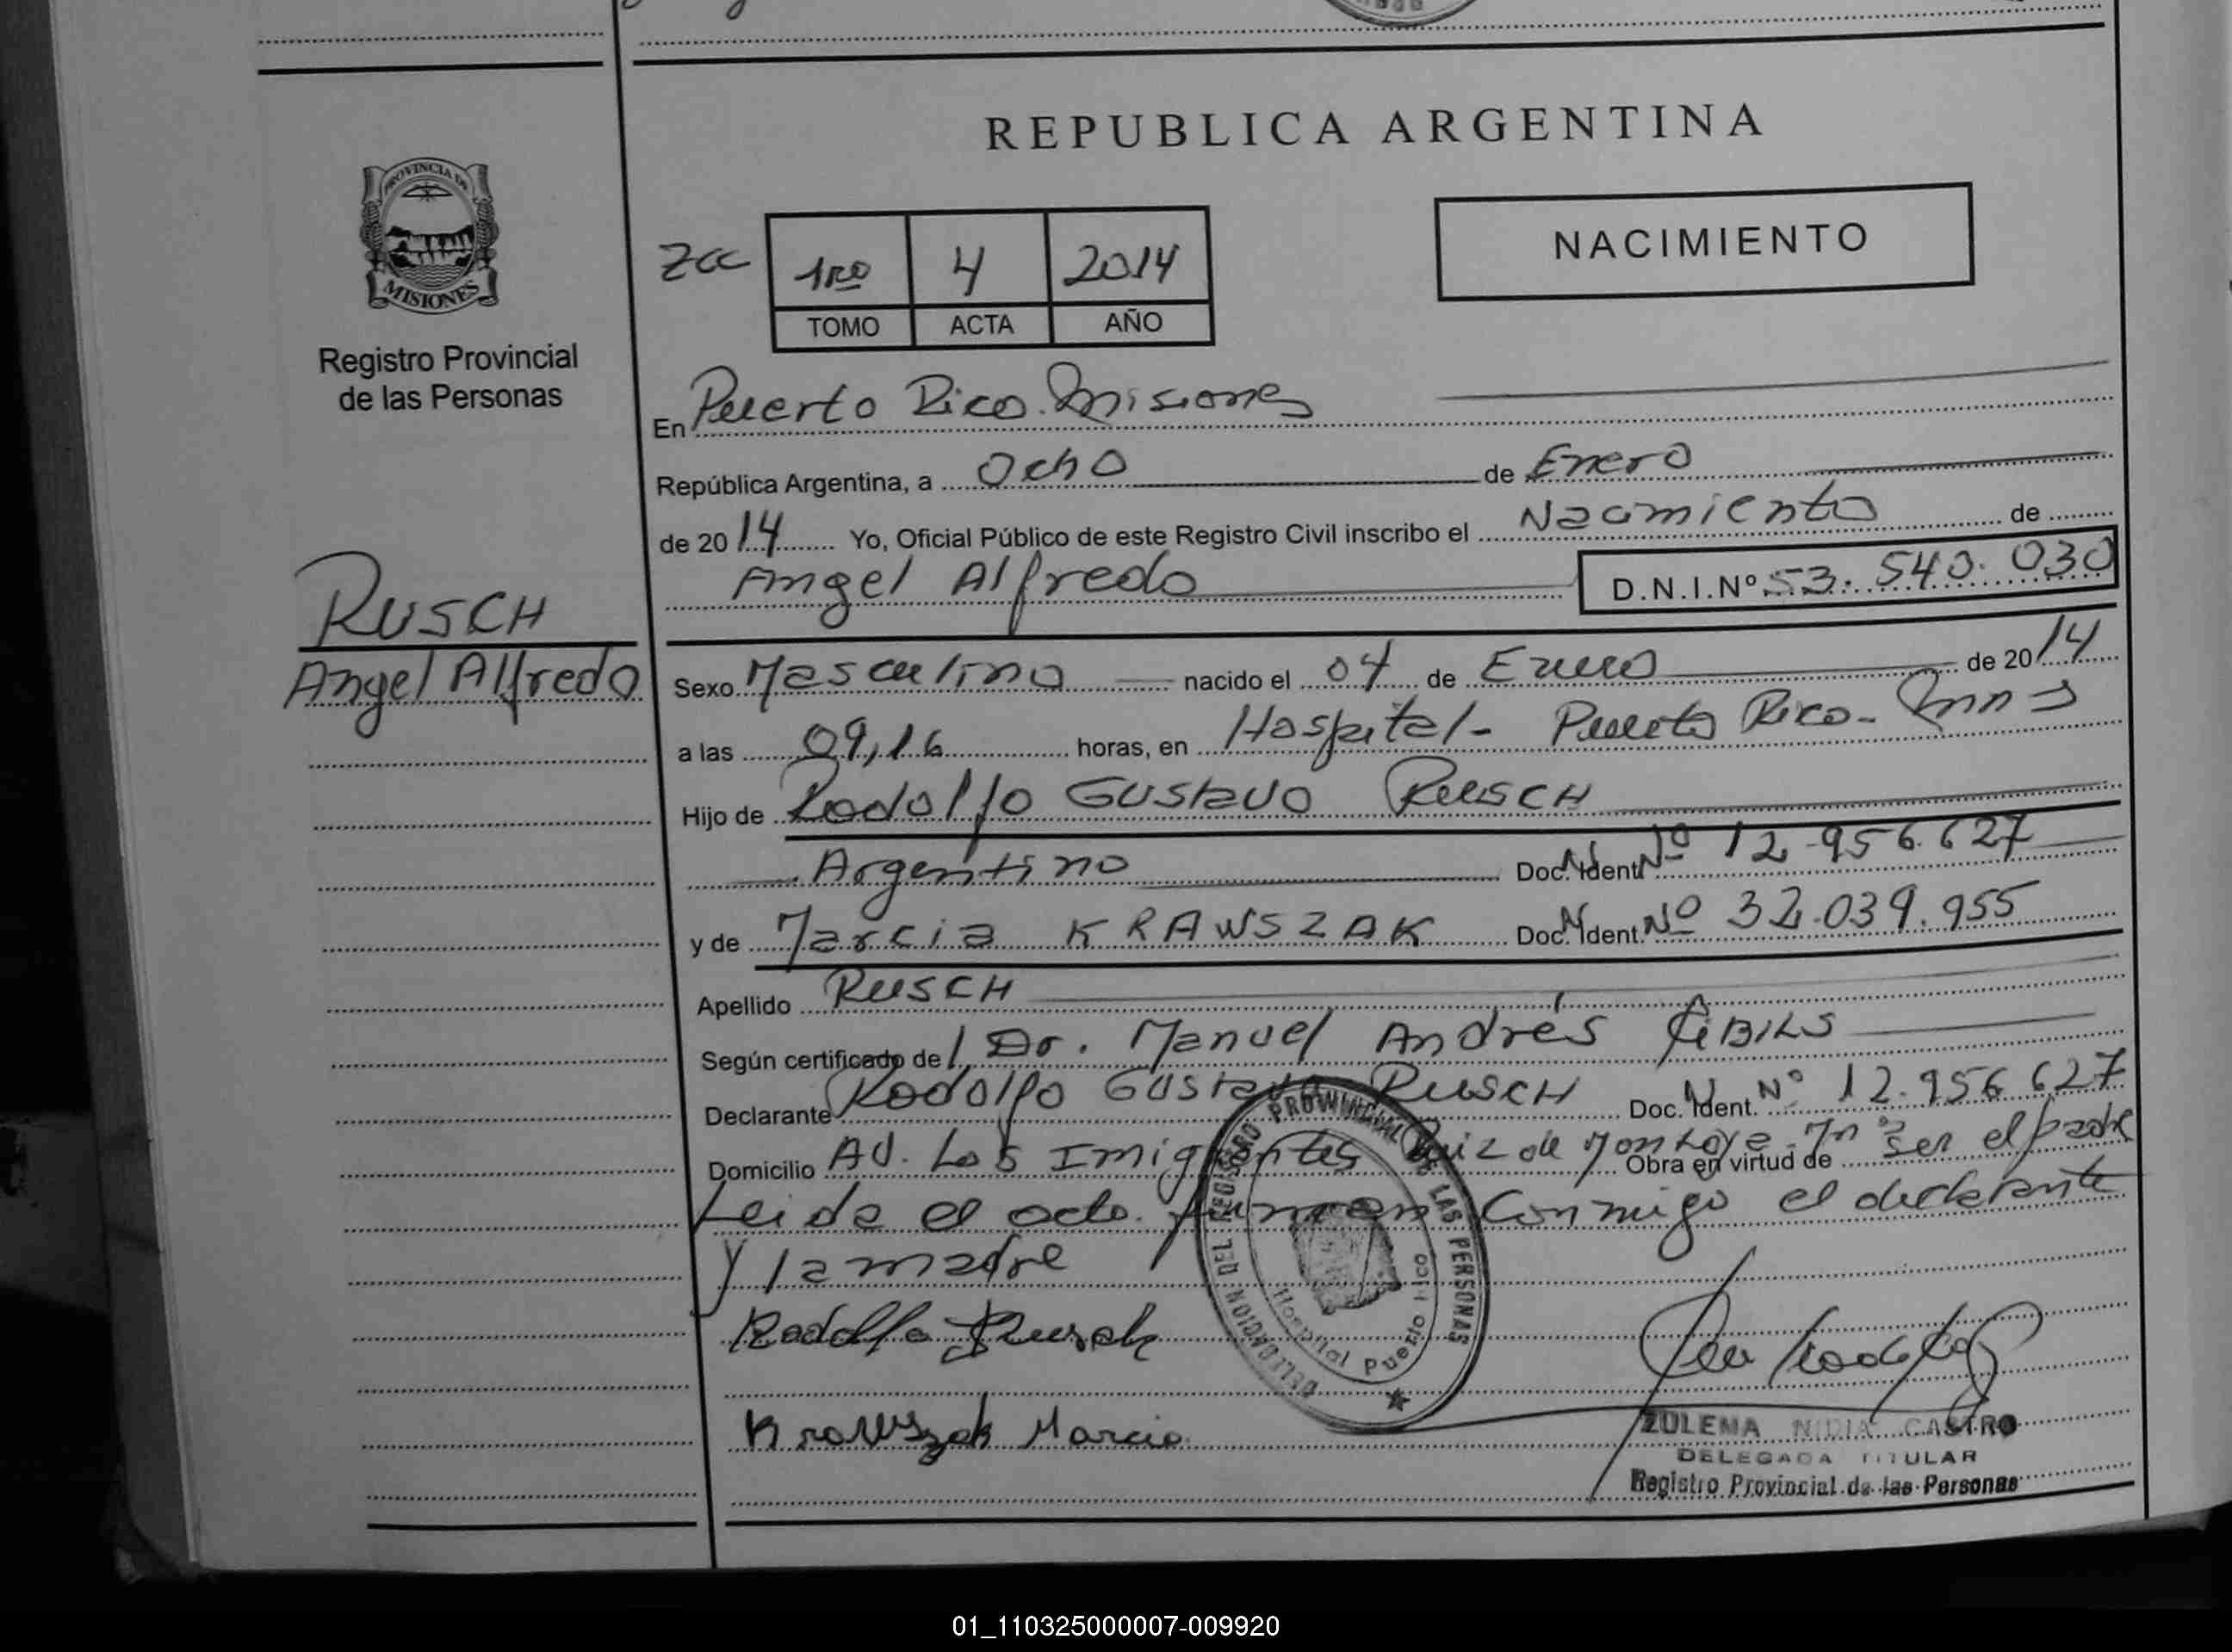 REPUBLICA ARGENTINA
PROVINCIA DE
MISIONES
Registro Provincial
de las Personas
NACIMIENTO
Zcc 1ro 4 2014
TOMO ACTA AÑO
En Puerto Rico. Misiones
República Argentina, a Ocho de Enero
de 2014 Yo, Oficial Público de este Registro Civil inscribo el Nacimiento de
Angel Alfredo D.N.I.Nº 53.540.030
RUSCH
Angel Alfredo
Sexo Masculino nacido el 04 de Enero de 2014
a las 09,16 horas, en Hospital - Puerto Rico - Mns
Hijo de Rodolfo Gustavo RUSCH
Argentino Doc. Ident. Nº 12.956.627
y de Marcia KRAWSZAK Doc. Ident. Nº 32.039.955
Apellido RUSCH
Según certificado del Dr. Manuel Andrés CIBILS
Declarante Rodolfo Gustavo RUSCH Doc. Ident. Nº 12.956.627
Domicilio AV. Los Imigrantes Ruiz de Montoya - Mnes Obra en virtud de ser el padre
Leida el acta. firman conmigo el declarante
y la madre
Rodolfo Rusch
Krawszak Marcia
DELEGACION DEL REGISTRO PROVINCIAL DE LAS PERSONAS
Hospital Puerto Rico
ZULEMA NIDIA CASTRO
DELEGADA TITULAR
Registro Provincial de las Personas
01_110325000007-009920